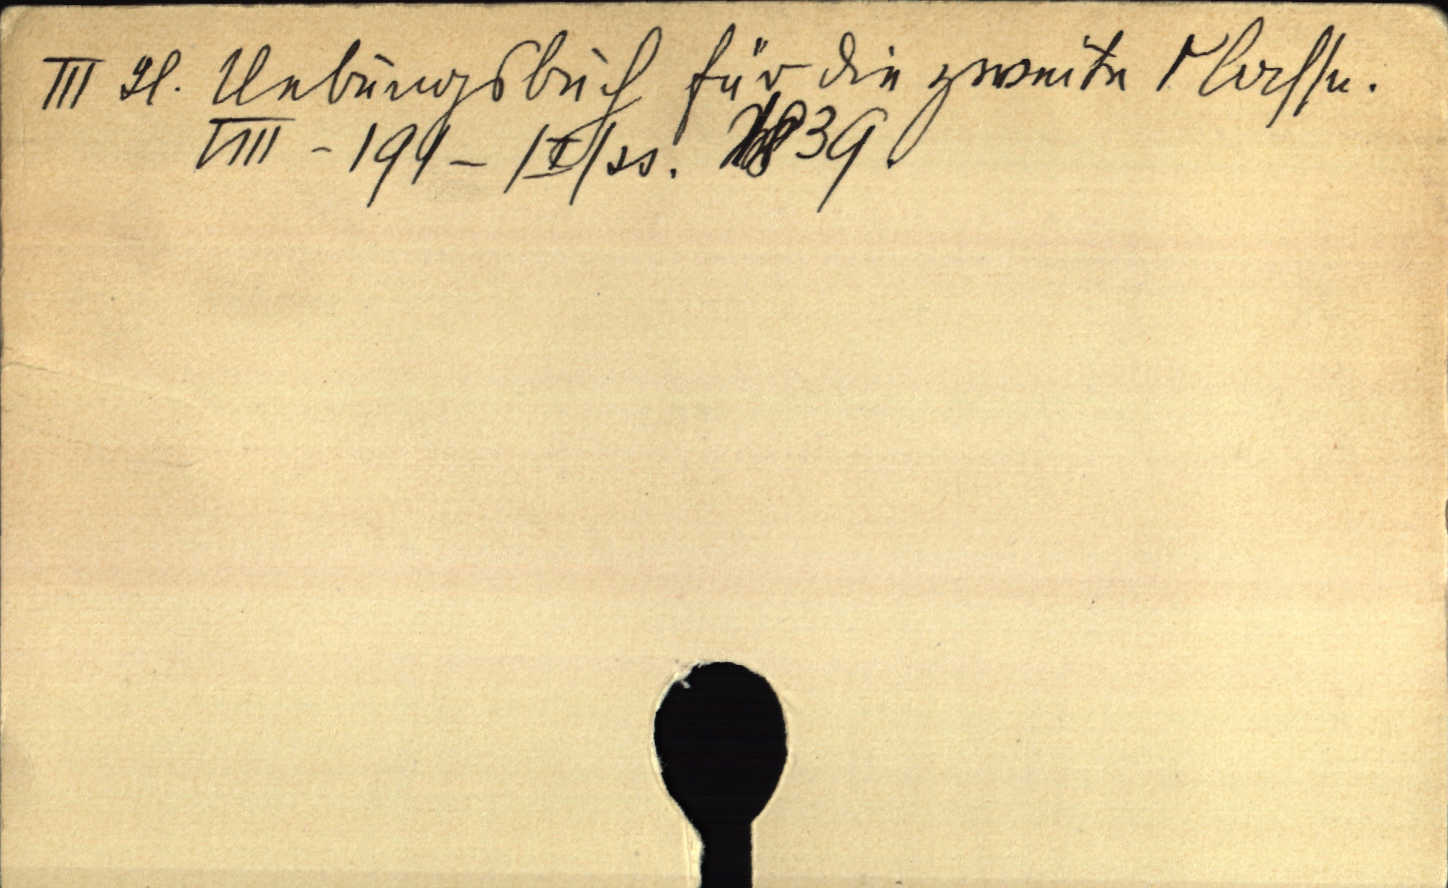 III H. Uebungsbuch für die zweite Klasse.
VIII - 191 - /II/ ss. 1839.